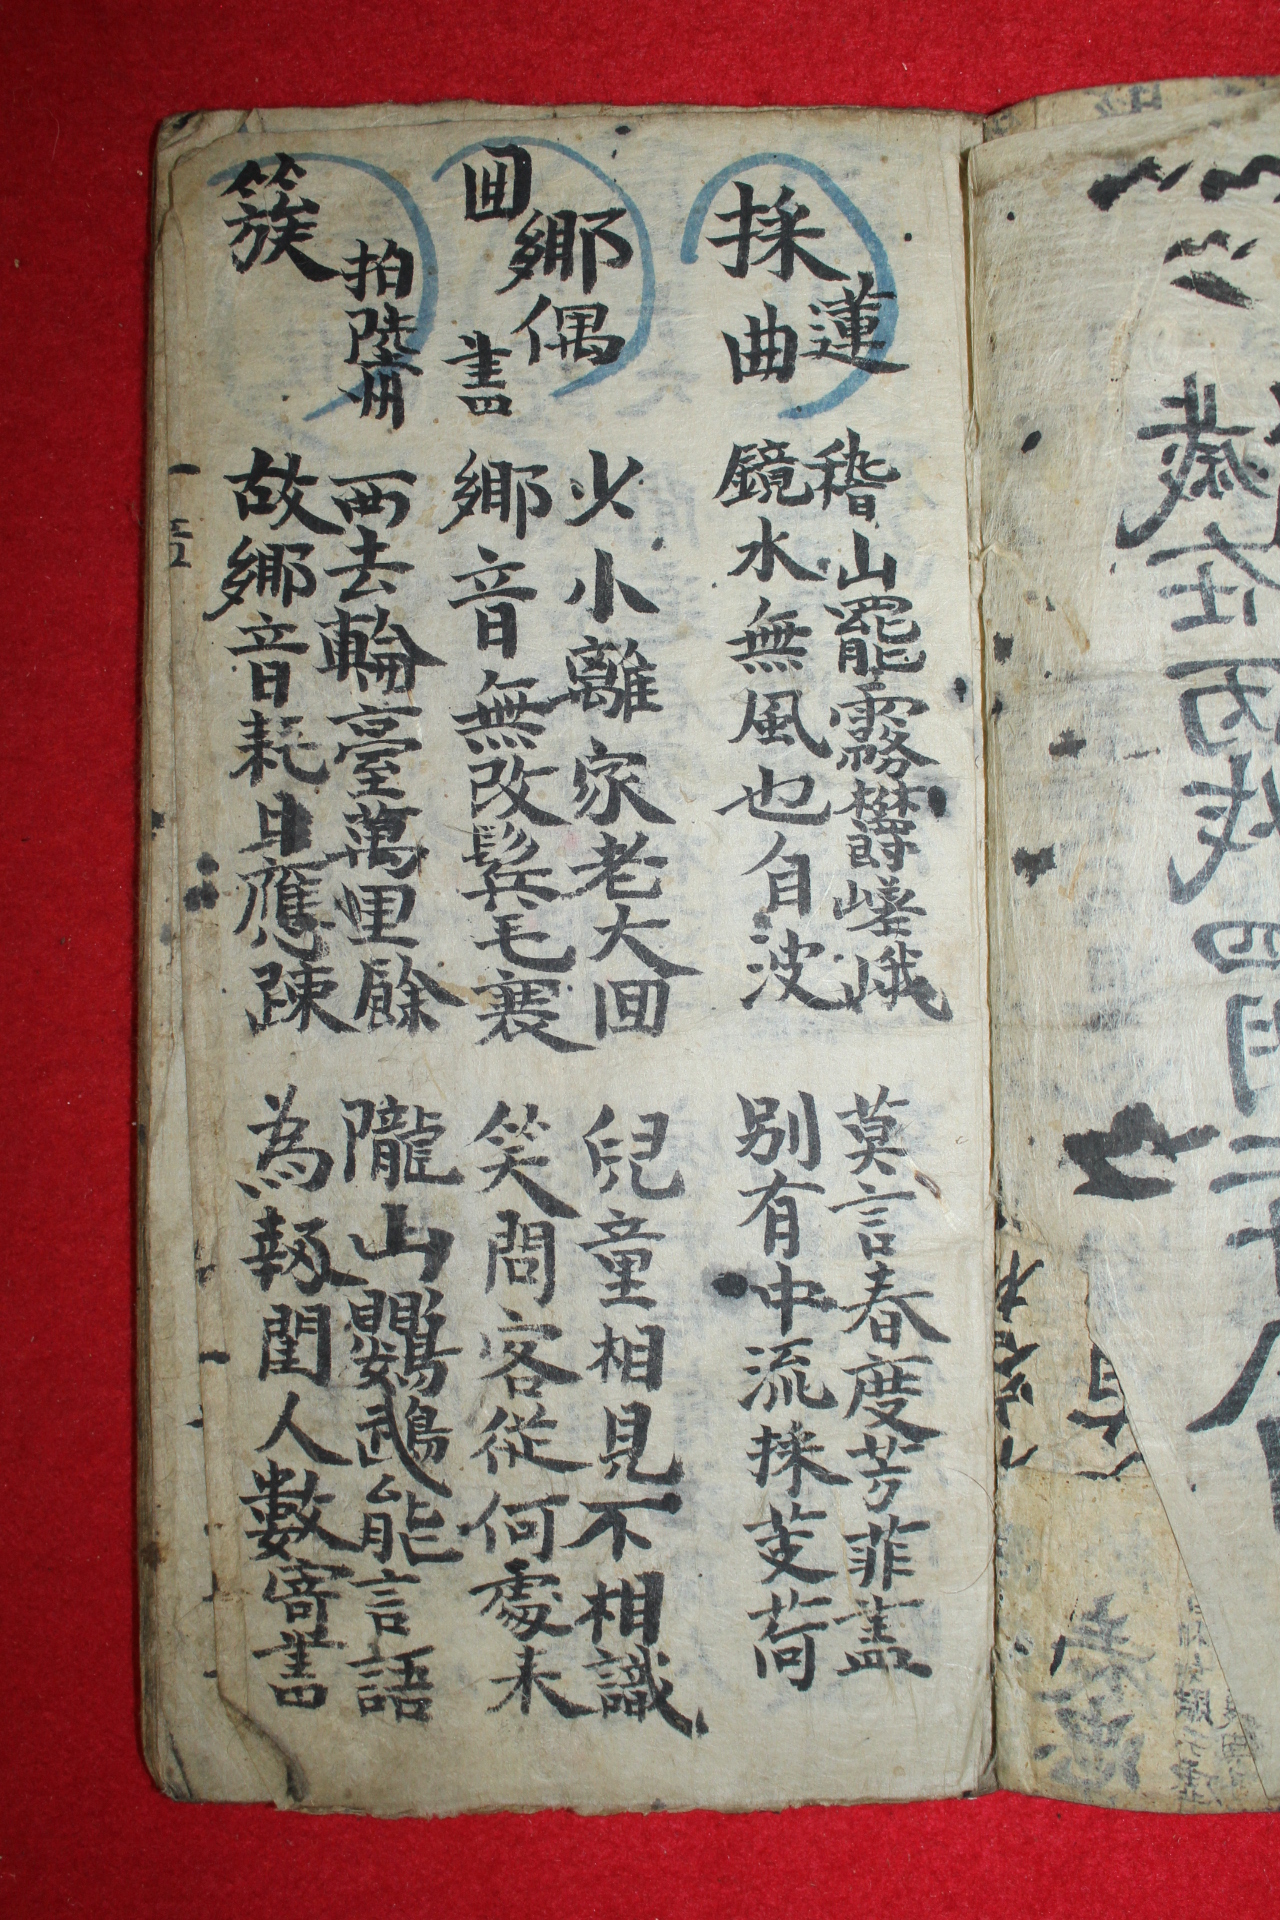 採蓮曲
稽山罷霧欝嵯峨
鏡水無風也自波
莫言春度芳菲盡
別有中流採芰荷
回鄉偶書
少小離家老大回
鄉音無改鬂毛衰
兒童相見不相識
笑問客從何處来
簇拍陸州
西去輪臺萬里餘
故鄉音耗日應疎
隴山鸚鵡能言語
為報閨人數寄書